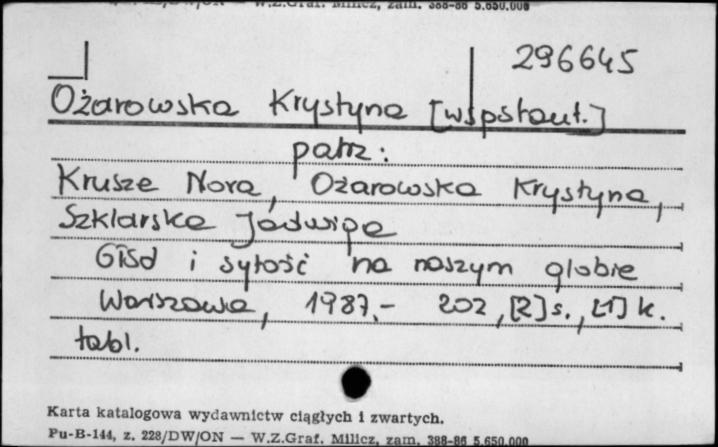 W.Z.Graf. Milicz, zam. 388-86 5.650.000
296645
Ożarowska Krystyna [współaut.]
patrz:
Krusze Nora, Ożarowska Krystyna,
Szklarska Jadwiga
Głód i sytość na naszym globie
Warszawa, 1987,- 202,[2]s.,[1]k.
tabl.
Karta katalogowa wydawnictw ciągłych i zwartych.
Pu-B-144, z. 228/DW/ON — W.Z.Graf. Milicz, zam. 388-86 5.650.000